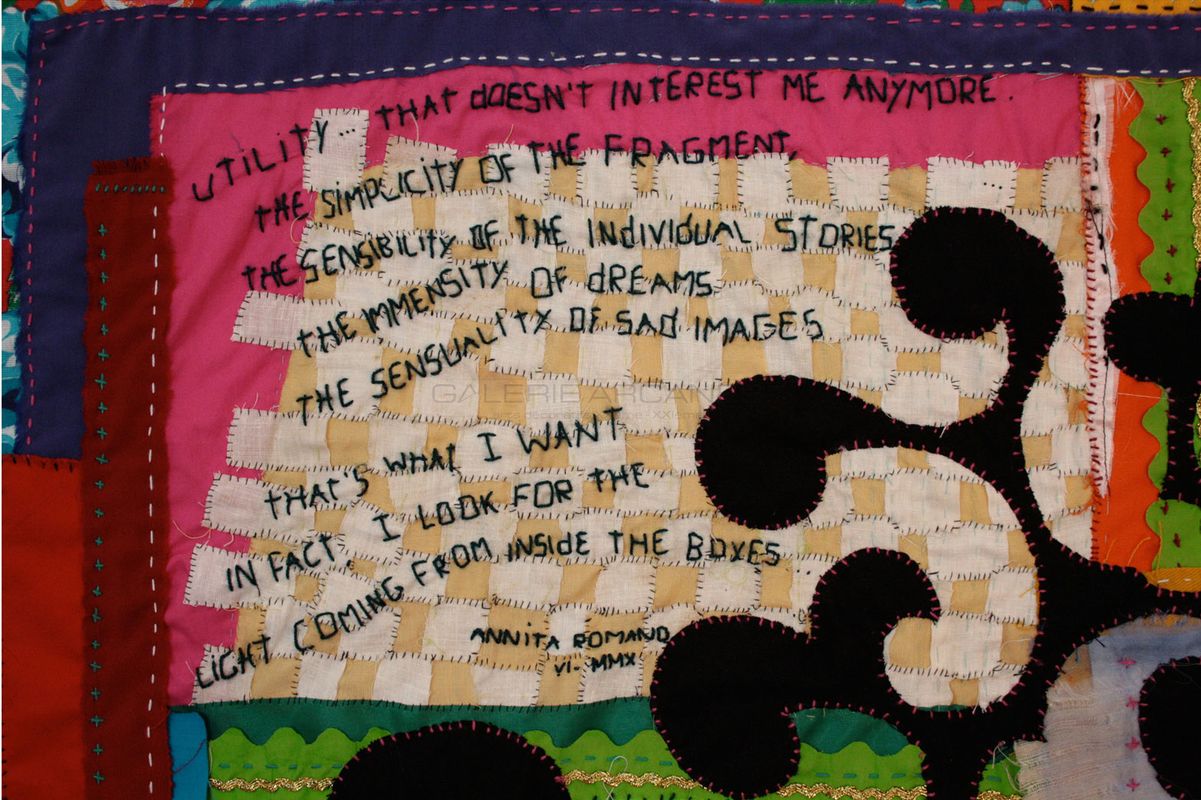 UTILITY... THAT doESN'T INTEREST ME ANYMORE.
THE SIMPLICITY OF THE FRAGMENT,
THE SENSIBILITY OF THE INdIVIdUAL STORIES
THE IMMENSITY OF dREAMS
THE SENSUALITY OF SAd IMAGES
THAT'S WHAT I WANT
IN FACT, I LOOK FOR THE
LIGHT COMING FROM INSIdE THE BOXES...
ANNITA ROMANO
VI-MMX
GALERIE ARCAN